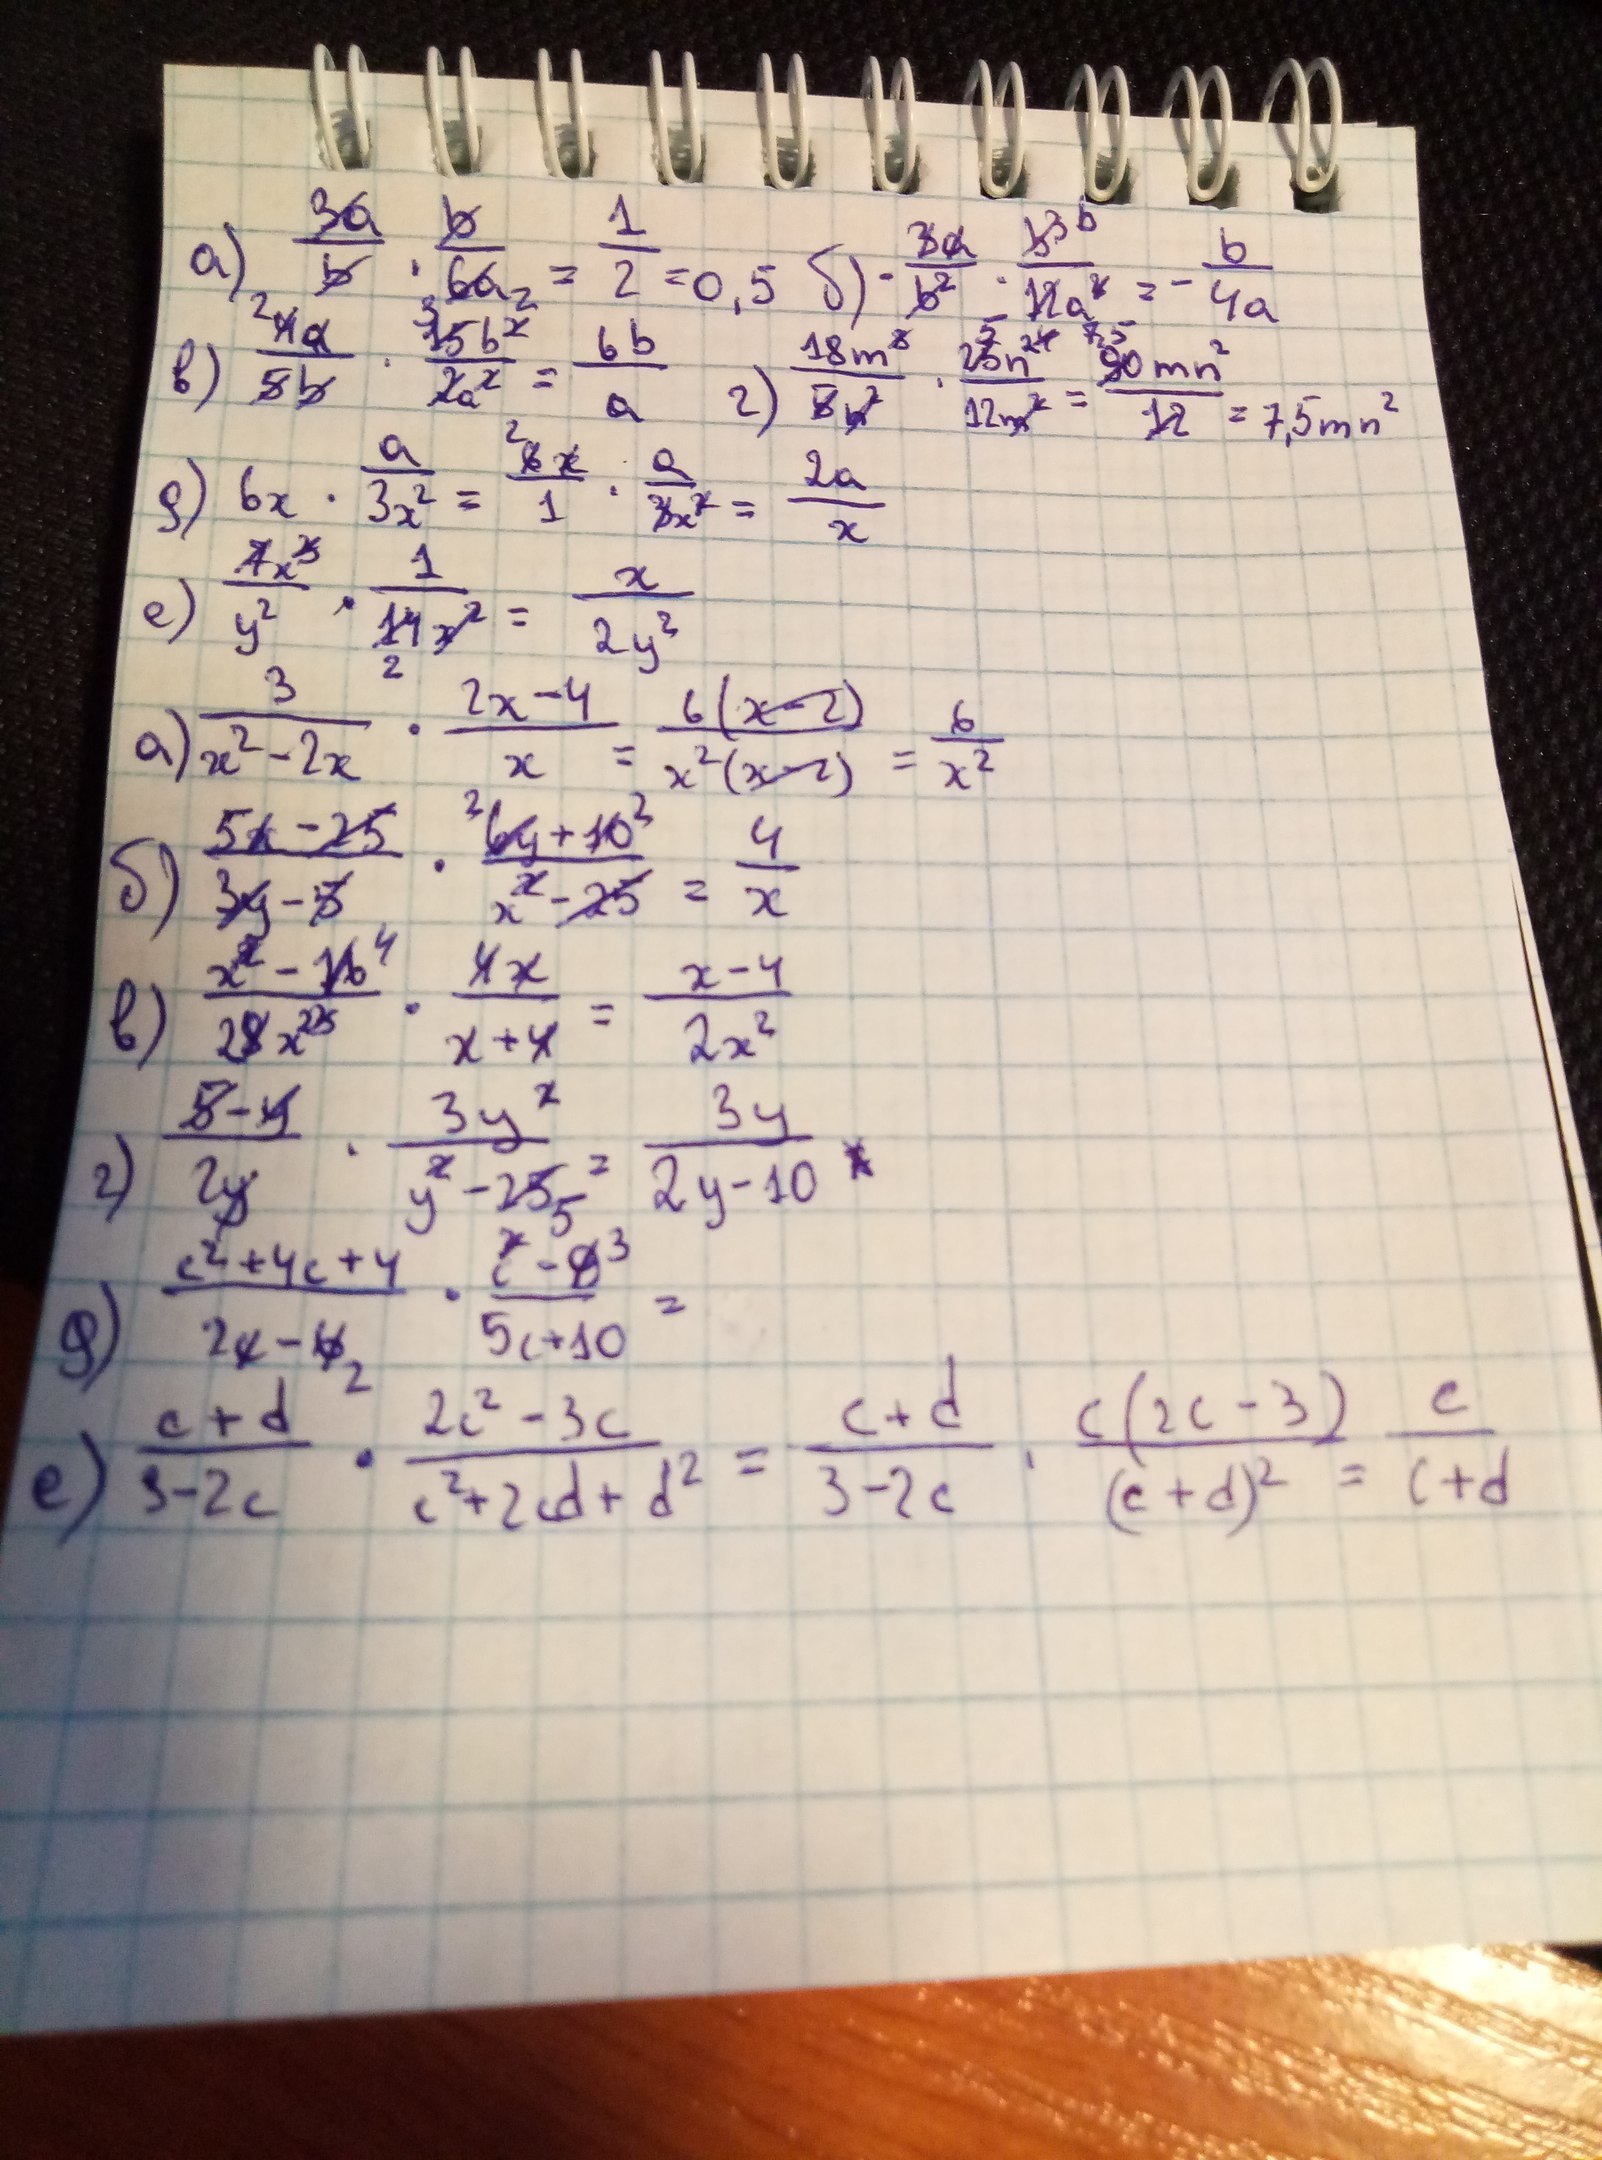 а) 3a/b · b/6a 2 = 1/2 = 0,5 б) - 3a/b² · b³ b/12a² = - b/4a
в) 2 4a/5b · 3 15b²/2a² = 6b/a г) 18m³/5n² · 5 25n⁴ 2/12m² = 7,5 90mn²/12 = 7,5mn²
д) 6x · a/3x² = 2 6x/1 · a/3x² = 2a/x
е) 7x³/y² · 1/14x² 2 = x/2y²
а) 3/x²-2x · 2x-4/x = 6(x-2)/x²(x-2) = 6/x²
б) 5x-25/3y-5 · 2 6y+10 2/x²-25 = 4/x
в) x²-16 4/28x³ 2 · 4x/x+4 = x-4/2x²
г) 5-y/2y · 3y²/y²-25 5 = 3y/2y-10
д) c²+4c+4/2c-4 2 · c²-9 3/5c+10 =
е) c+d/3-2c · 2c²-3c/c²+2cd+d² = c+d/3-2c · c(2c-3)/(c+d)² = c/c+d